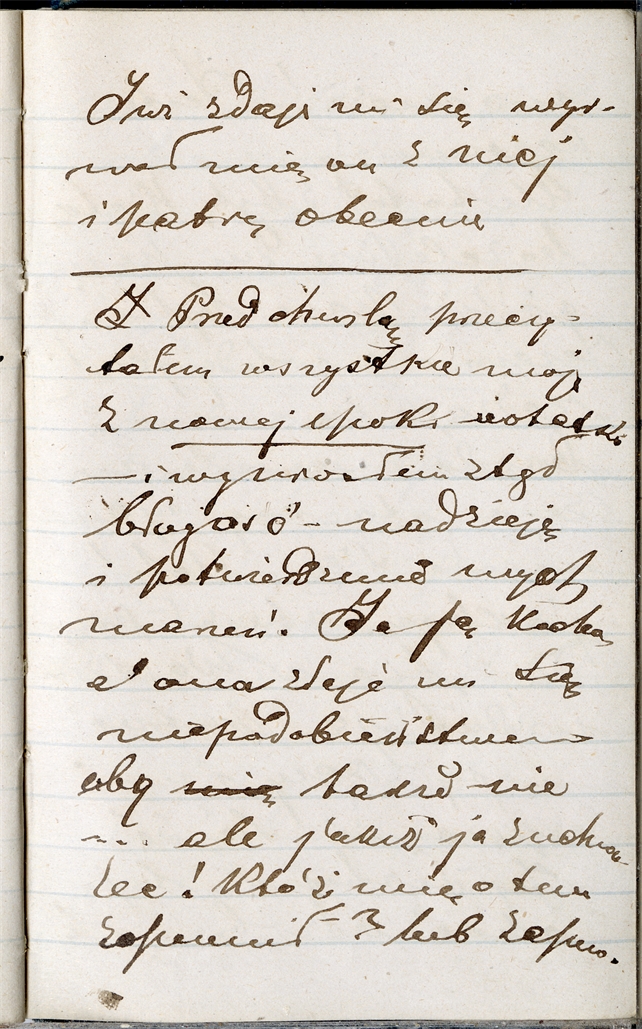 I wi zdaje mi się wyr-
wał mię on z niej
i patrzę obecnie
X Przed chwilą przeczy-
tałem wszystkie moje
z nowej epoki notatki
— i wyniosłem ztąd
błogość – nadzieję
i potwierdzenie mych
marzeń. Ja ją Kocham
a ona zdaje mi się
niepodobieństwem
aby mię także nie
--.. ale jakiż ja zuchwa-
lec! Któż mię o tem
zapewnił? lub zapew.